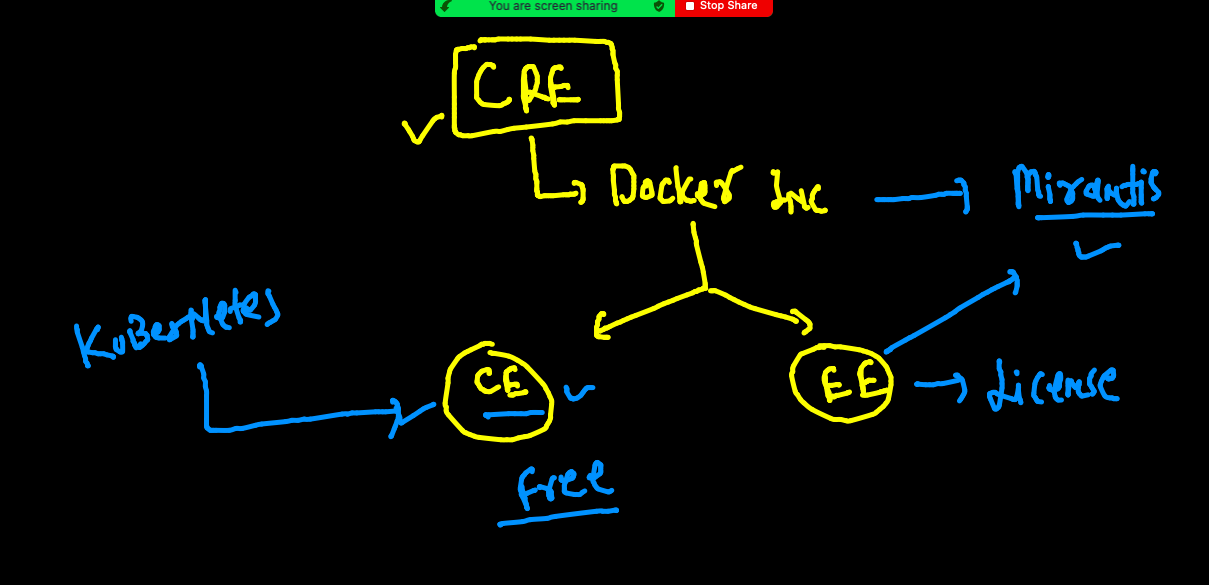 You are screen sharing
Stop Share
CRE
Docker Inc
Mirantis
KuBerNetes
CE
EE
License
free